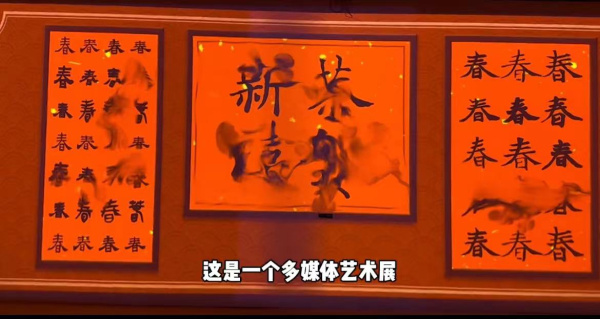 春春春春
春春春
春春春
春春春
春春
春春春春
春春春春
恭賀
新禧
春春春
春春春
春春春
春春春
春春春
这是一个多媒体艺术展